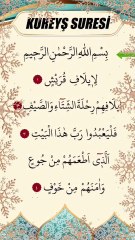 KUREYŞ SURESİ
بِسْمِ اللّٰهِ الرَّحْمٰنِ الرَّحِيمِ
لِا۪يلَافِ قُرَيْشٍۙ ١
ا۪يلَافِهِمْ رِحْلَةَ الشِّتَٓاءِ وَالصَّيْفِۚ ٢
فَلْيَعْبُدُوا رَبَّ هٰذَا الْبَيْتِۙ ٣
اَلَّذ۪ٓي اَطْعَمَهُمْ مِنْ جُوعٍ
وَاٰمَنَهُمْ مِنْ خَوْفٍ ٤